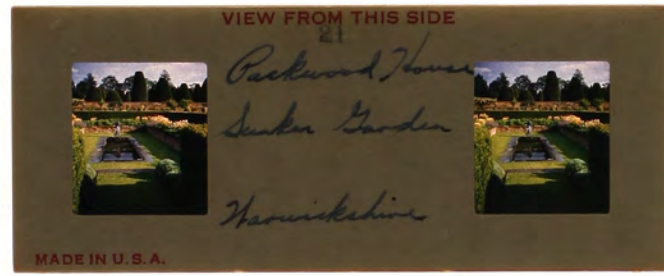 VIEW FROM THIS SIDE
21
Packwood House
Sunken Garden
Warwickshire
MADE IN U.S.A.